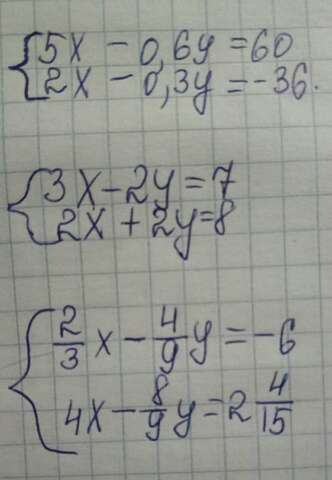 5x - 0,6y = 60
2x - 0,3y = -36.
3x - 2y = 7
2x + 2y = 8
2/3 x - 4/9 y = -6
4x - 8/9 y = 2 4/15